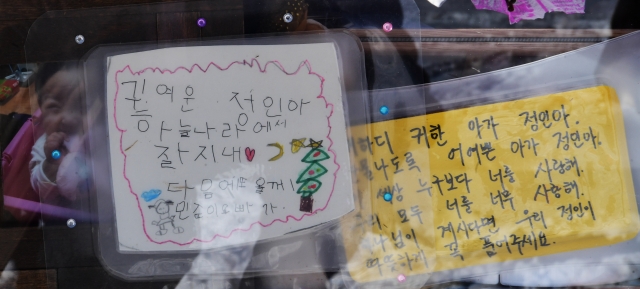 귀여운 정인아
하늘나라에서
잘지내♥
다음에또올게!
귀한 아가 정인아.
어여쁜 아가 정인아.
누구보다 너를 사랑해.
모두 너를 너무 사랑해.
계시다면 우리 정인이
따뜻하게 꼭 품어주세요.